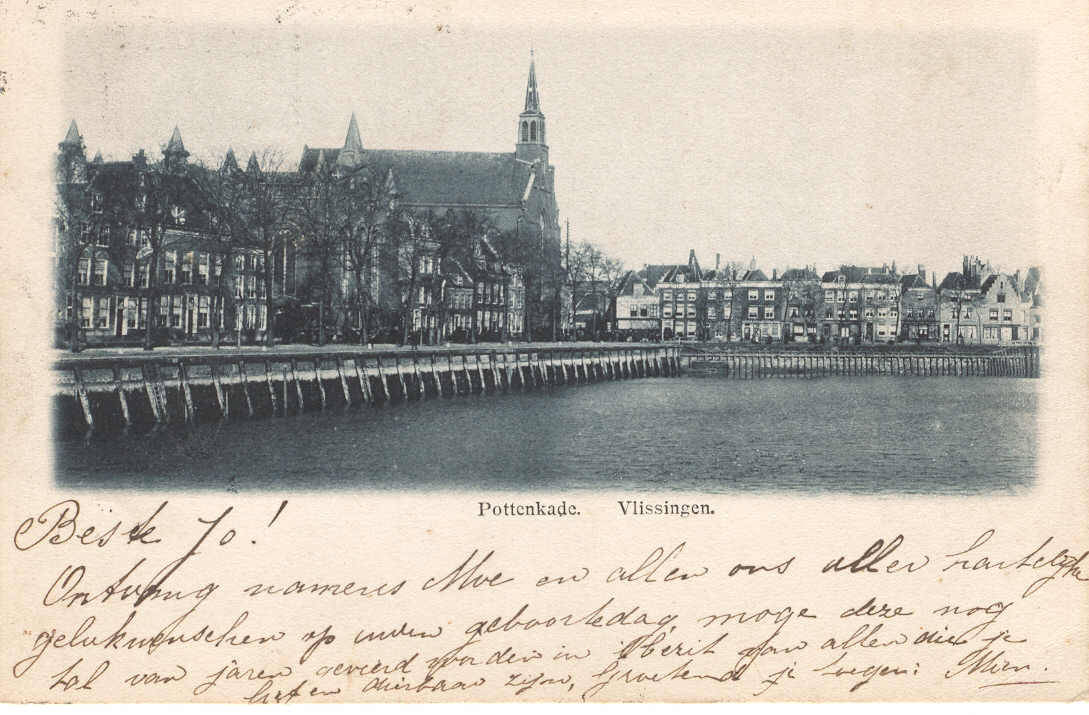 Pottenkade. Vlissingen.
Beste Jo!
Ontvang namens Moe en allen ons aller hartelijke
gelukwenschen op uwen geboortedag, moge deze nog
tal van jaren gevierd worden in 't bezit van allen die je
lief en dierbaar zijn, Groetend je toegen: Mien.